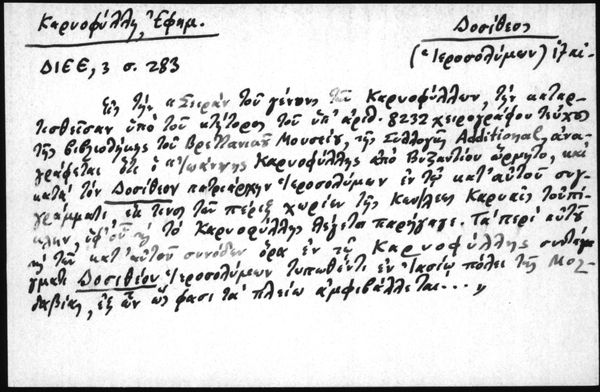 Καρυοφύλλη, Ἐφημ.
Δοσίθεος
(Ἱεροσολύμων)
ΔΙΕΕ, 3 σ. 283
Εἰς τὴν «Σειρὰν τοῦ γένους τῶν Καρυοφύλλων, τὴν καταρ-
τισθεῖσαν ὑπὸ τοῦ κτήτορος τοῦ ὑπ' ἀριθ. 8232 χειρογράφου τεύχους
τῆς βιβλιοθήκης τοῦ Βρεττανικοῦ Μουσείου, τῆς Συλλογῆς Additional, ἀνα-
γράφεται ὅτι ὁ «Ἰωάννης Καρυοφύλλης ἀπὸ Βυζαντίου ὥρμητο, καὶ
κατὰ τὸν Δοσίθεον πατριάρχην Ἱεροσολύμων ἐν τῷ κατ' αὐτοῦ συγ-
γράμματι ἔκ τινος τῶν πέριξ χωρίων τῆς Κων/λεως Καρυαὶς τοὐπί-
κλην, ὑφ' οὗ τὸ Καρυοφύλλης λέγεται παρήγαγε. Τὰ περὶ αὐτοῦ
τῆς τῶν κατ' αὐτοῦ συνόδων ὅρα ἐν τῷ Καρυοφύλλης συνταγ-
γματι Δοσιθέου Ἱεροσολύμων τυπωθέντι ἐν Ἰασίῳ πόλει τῆς Μολ-
δαβίας, ἐξ ὧν ὥς φασι τὰ πλείω ἀμφιβάλλεται...»